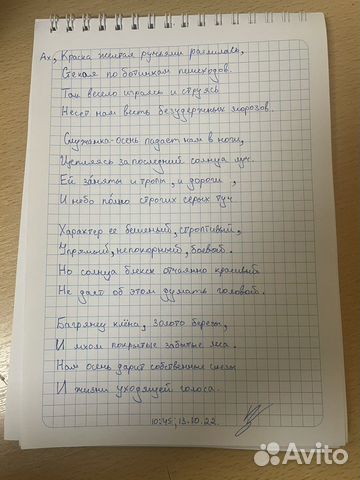 Ах, Краска желтая ручьями разлилась,
Стекая по ботинкам пешеходов.
Так весело играясь и струясь
Несет нам весть безудержных морозов.
Служанка-осень падает нам в ноги,
Цепляясь за последний солнца луч.
Ей заняты и тропы, и дороги,
И небо полно строгих серых туч
Характер её бешеный, строптивый,
Упрямый, непокорный, боевой.
Но солнца блеск отчаянно красивый
Не дает об этом думать головой.
Багрянец клёна, золото берёзы,
И мхом покрытые забытые леса.
Нам осень дарит собственные слезы
И жизни уходящей голоса.
10:45, 13.10.22
Avito